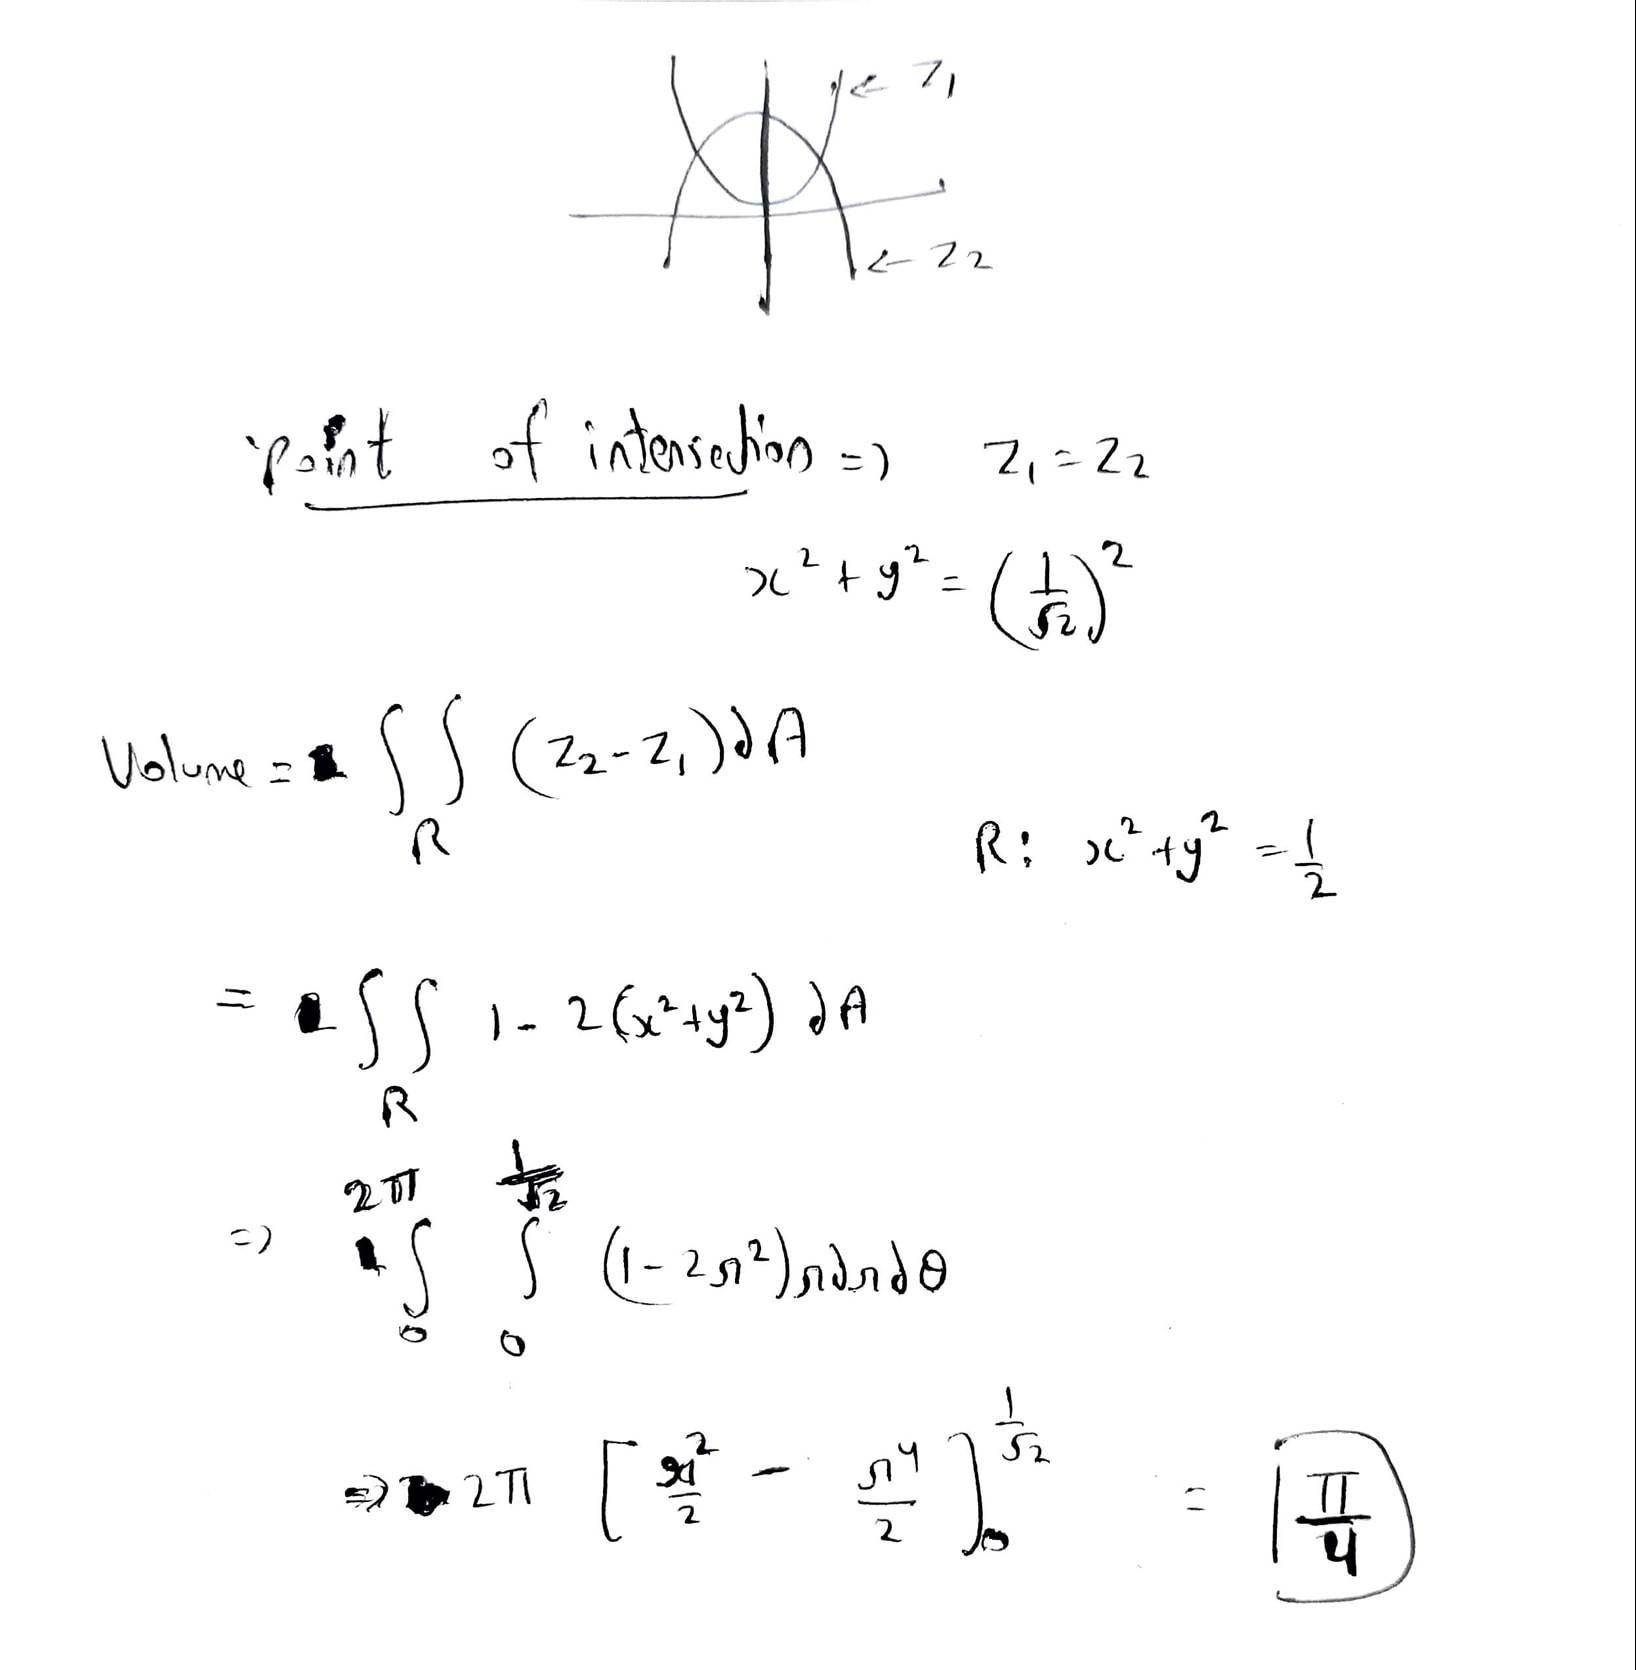 ← z₁
← z₂
point of intersection => z₁ = z₂
x² + y² = (1/√2)²
Volume = ∫∫_R (z₂ - z₁) dA
R: x² + y² = 1/2
= ∫∫_R 1 - 2(x² + y²) dA
=> ∫_0^{2π} ∫_0^{1/√2} (1 - 2r²) r dr dθ
=> 2π [r²/2 - r⁴/2]_0^{1/√2} = π/4